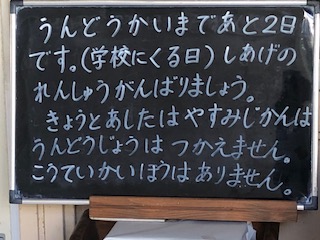 うんどうかいまであと2日
です。(学校にくる日)しあげの
れんしゅうがんばりましょう。
きょうとあしたはやすみじかんは
うんどうじょうはつかえません。
こうていかいほうはありません。